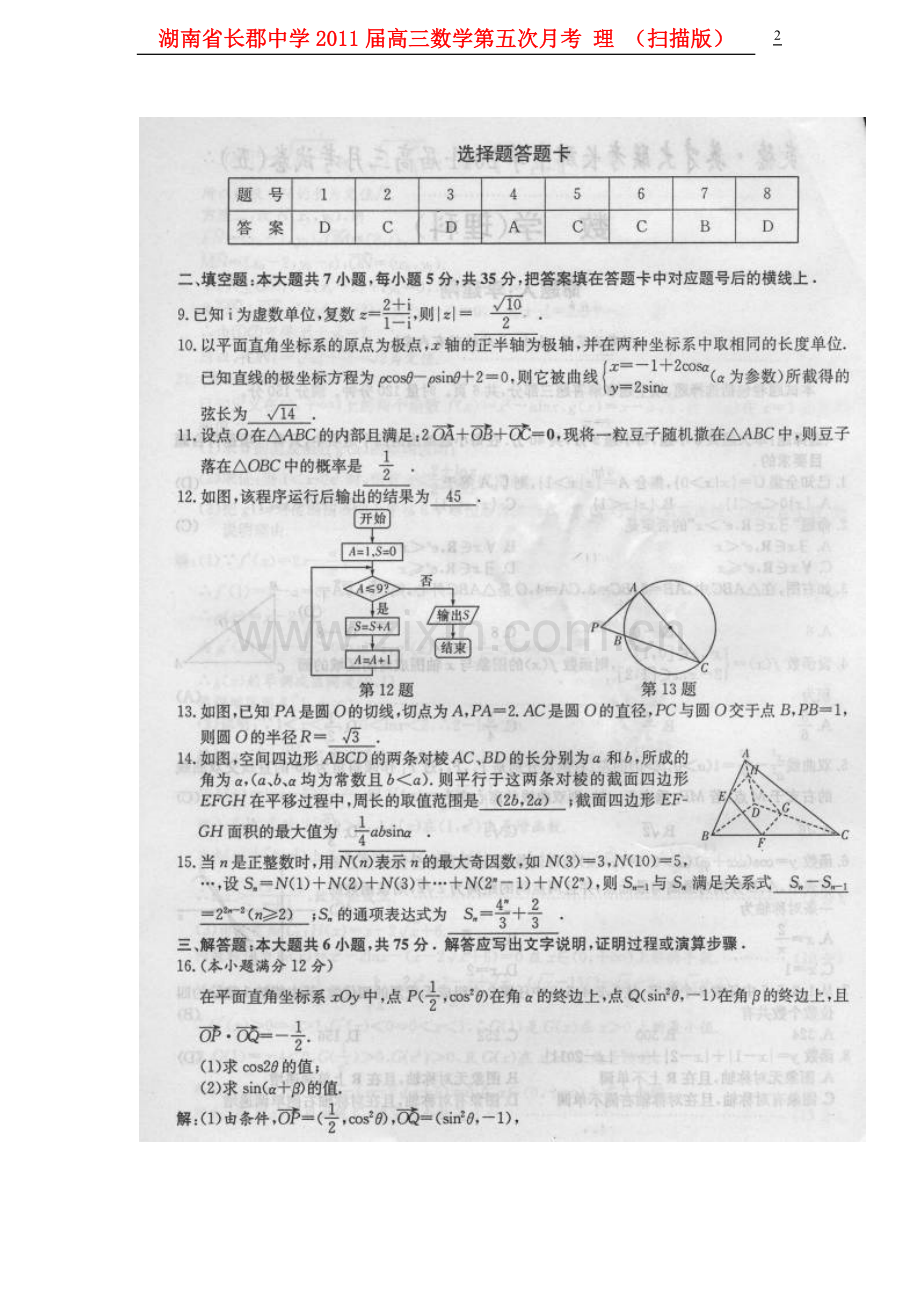 湖南省长郡中学 2011 届高三数学第五次月考 理 （扫描版）
2
选择题答题卡
题 号 1 2 3 4 5 6 7 8
答 案 D C D A C C B D
二、填空题:本大题共 7 小题,每小题 5 分,共 35 分,把答案填在答题卡中对应题号后的横线上.
9.已知 i 为虚数单位,复数 z=(2+i)/(1-i),则|z|= √10/2 .
10.以平面直角坐标系的原点为极点,x 轴的正半轴为极轴,并在两种坐标系中取相同的长度单位.
已知直线的极坐标方程为 ρcosθ-ρsinθ+2=0,则它被曲线{x=-1+2cosα y=2sinα(α 为参数)所截得的
弦长为 √14 .
11.设点 O 在△ABC 的内部且满足:2OA+OB+OC=0,现将一粒豆子随机撒在△ABC 中,则豆子
落在△OBC 中的概率是 1/2 .
12.如图,该程序运行后输出的结果为 45 .
开始
A=1,S=0
A≤9?
否
是
S=S+A
A=A+1
输出S
结束
A
P
B
C
第 12 题
第 13 题
13.如图,已知 PA 是圆 O 的切线,切点为 A,PA=2. AC 是圆 O 的直径,PC 与圆 O 交于点 B,PB=1,
则圆 O 的半径 R= √3 .
14.如图,空间四边形 ABCD 的两条对棱 AC、BD 的长分别为 a 和 b,所成的
角为 α,(a、b、α 均为常数且 b<a). 则平行于这两条对棱的截面四边形
EFGH 在平移过程中,周长的取值范围是 (2b,2a) ;截面四边形 EF-
GH 面积的最大值为 1/4 absinα .
A
H
E
D
G
B
F
C
15.当 n 是正整数时,用 N(n)表示 n 的最大奇因数,如 N(3)=3,N(10)=5,
…,设 Sₙ=N(1)+N(2)+N(3)+…+N(2ⁿ-1)+N(2ⁿ),则 Sₙ₋₁与 Sₙ 满足关系式 Sₙ-Sₙ₋₁
=2²ⁿ⁻²(n≥2) ;Sₙ 的通项表达式为 Sₙ=4ⁿ/3+2/3 .
三、解答题:本大题共 6 小题,共 75 分. 解答应写出文字说明,证明过程或演算步骤.
16.(本小题满分 12 分)
在平面直角坐标系 xOy 中,点 P(1/2,cos²θ)在角 α 的终边上,点 Q(sin²θ,-1)在角 β 的终边上,且
OP·OQ=-1/2.
(1)求 cos2θ 的值;
(2)求 sin(α+β)的值.
解:(1)由条件,OP=(1/2,cos²θ),OQ=(sin²θ,-1),